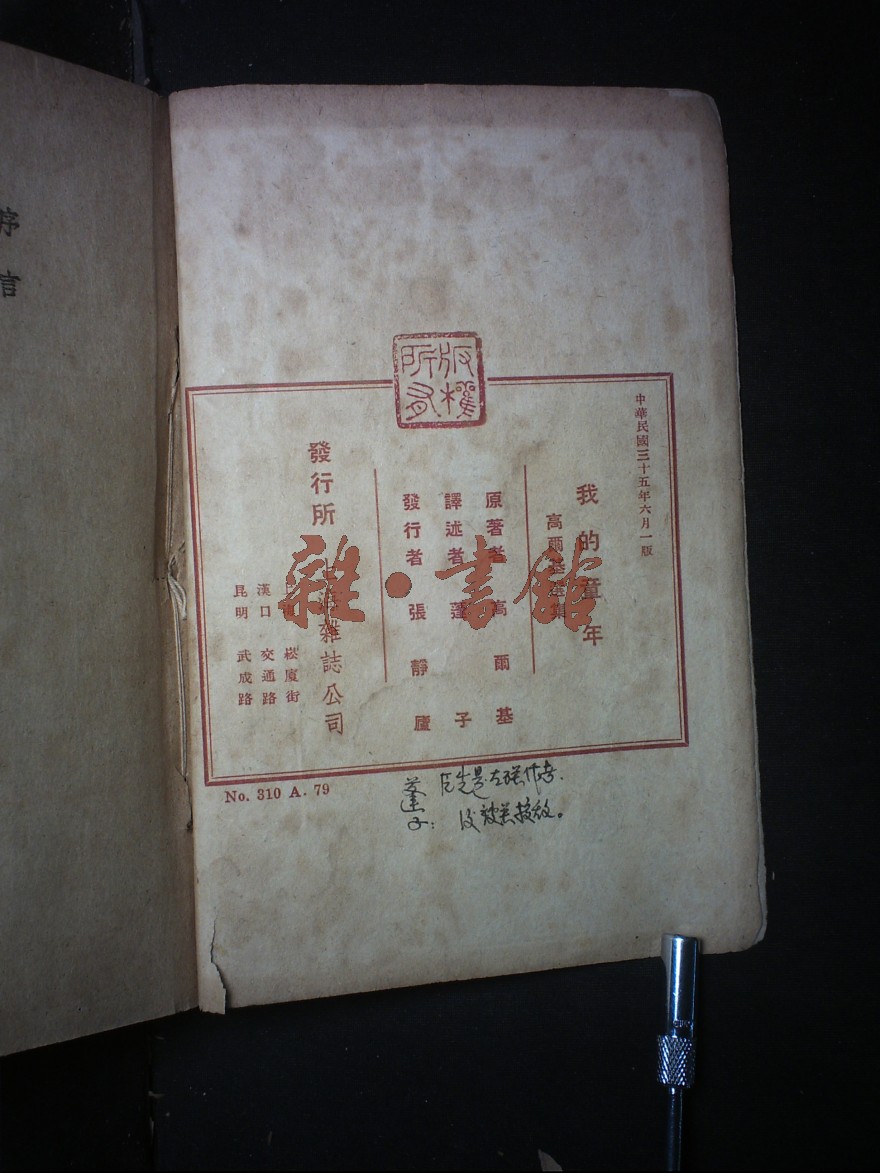 序言
版權所有
中華民國三十五年六月一版
我的童年
高爾基選集
原著者 高爾基
譯述者 蓬子
發行者 張靜廬
發行所 上海雜誌公司
上海 崧廈街
漢口 交通路
昆明 武成路
No. 310 A. 79
蓬子:
雜·書館